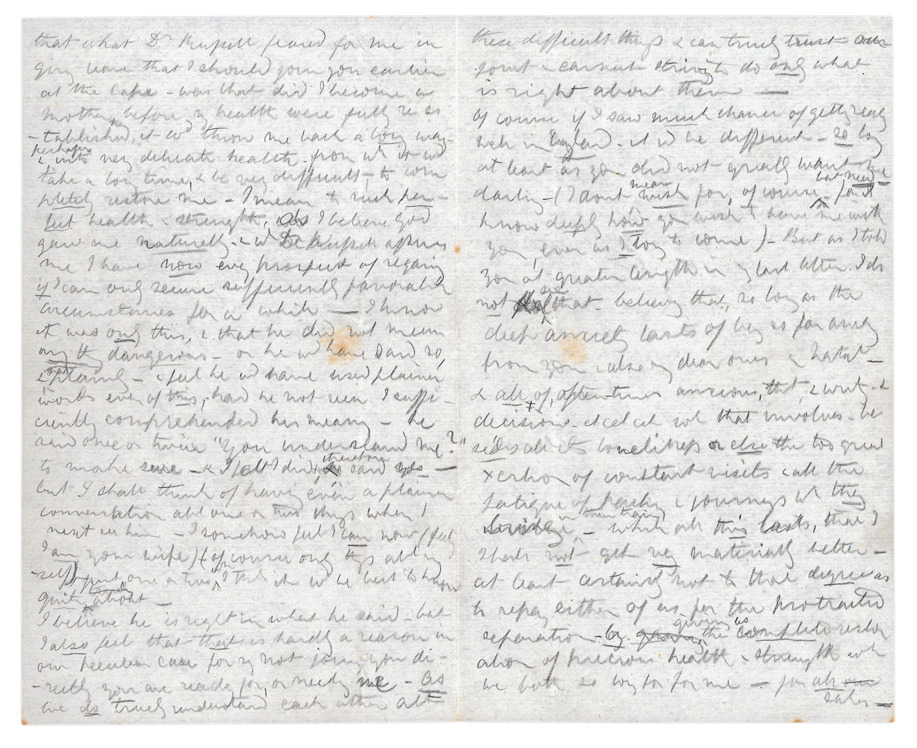 that what Dr Russell feared for me in
giving leave that I should join you earlier
at the Cape - was that did I become a
mother, before my health were fully re es
-tablished, it wd throw me back a long way -
perhaps
& into very delicate health - from wh it wd
take a long time, & be very difficult - to com
pletely restore me - I mean to such per-
fect health & strength, as I believe God
gave me naturally - & wh Dr Russell assures
me I have now every prospect of regaining
if I can only secure sufficiently favorable
circumstances for a while — I know
it was only this, & that he did not mean
dangerous - or he wd have said so,
& plainly - I feel he wd have used plainer
words even of this, had he not seen I suffi-
ciently comprehended his meaning - he
said once or twice "You understand me?"
to make sure - & I felt I did, therefore said yes —
but I shall think of having even a plainer
conversation abt one or two things when I
next see him - I somehow feel I can now (feeling
I am your wife) of course only
one or two, I think it wd be best to know
quite about —
I believe he is right in what he said - but
I also feel that that is hardly a reason in
our peculiar case for my not joining you di-
-rectly you are ready for, or need me - as
we do truly understand each other abt
these difficult things & can truly trust our
joint & earnest striving to do only what
is right about them —
Of course if I saw much chance of getting really
well in England - it wd be different - so long
at least as you did not greatly want me
mean but need
darling - (I dont wish for, of course, for I
know deeply how you wish to have me with
you, even as I long to come) - But as I told
you at greater length in my last letter - I do
see
not that - believing that, so long as the
deep anxiety lasts of being so far away
from you, & also my dear ones in Natal -
& all of, oftentimes anxious, thot, & writg - &
decisions - etcet wh that involves - be
sides all its loneliness or else the too great
exertion of constant visits & all the
fatigue of packg & journeys wh they
- while all this lasts, that I
shall not get very materially better -
at least certainly not to that degree as
to repay either of us for the protracted
given us
separation - by the complete restor
ation of precious health & strength wh
we both so long for for me — for all
sakes —